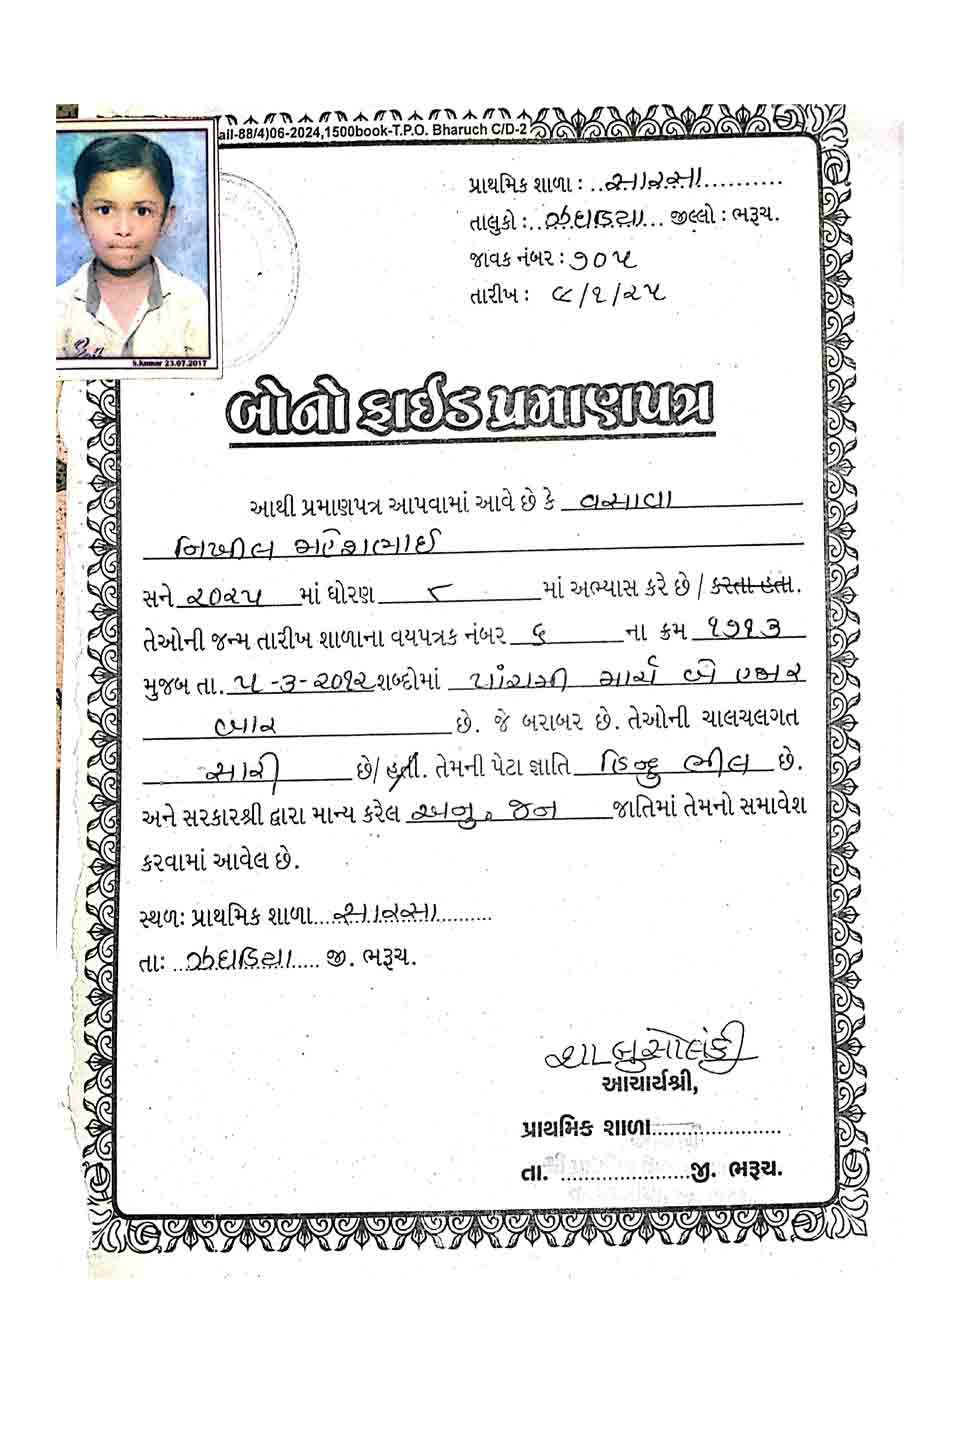 ail-88/4)06-2024,1500book-T.P.O. Bharuch C/D-2
પ્રાથમિક શાળા : ..સારસા..........
તાલુકો :..ઝઘડિયા.... જીલ્લો : ભરૂચ.
જાવક નંબર : ૭૦૫
તારીખ : ૯/૧/૨૫
S.Kumar 23.07.2017
બોનોફાઈડ પ્રમાણપત્ર
આથી પ્રમાણપત્ર આપવામાં આવે છે કે વસાવા
નિખીલ મહેશભાઈ
સને ૨૦૨૫ માં ધોરણ ૮ માં અભ્યાસ કરે છે / કરતા હતા.
તેઓની જન્મ તારીખ શાળાના વયપત્રક નંબર ૬ ના ક્રમ ૧૭૧૩
મુજબ તા. ૫-૩-૨૦૧૨ શબ્દોમાં પાંચમી માર્ચ બે હજાર
બાર છે. જે બરાબર છે. તેઓની ચાલચલગત
સારી છે/ હતી. તેમની પેટા જ્ઞાતિ હિન્દુ ભીલ છે.
અને સરકારશ્રી દ્વારા માન્ય કરેલ અનુ. જન જાતિમાં તેમનો સમાવેશ
કરવામાં આવેલ છે.
સ્થળઃ પ્રાથમિક શાળા....સારસા..........
તાઃ ..ઝઘડિયા..... જી. ભરૂચ.
આચાર્યશ્રી,
પ્રાથમિક શાળા......................
તા. ......................જી. ભરૂચ.